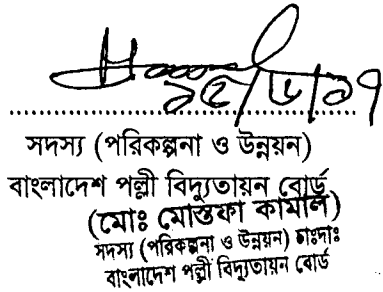 ১৫/৬/১৭
সদস্য (পরিকল্পনা ও উন্নয়ন)
বাংলাদেশ পল্লী বিদ্যুতায়ন বোর্ড
(মোঃ মোস্তফা কামাল)
সদস্য (পরিকল্পনা ও উন্নয়ন) চাঃদাঃ
বাংলাদেশ পল্লী বিদ্যুতায়ন বোর্ড